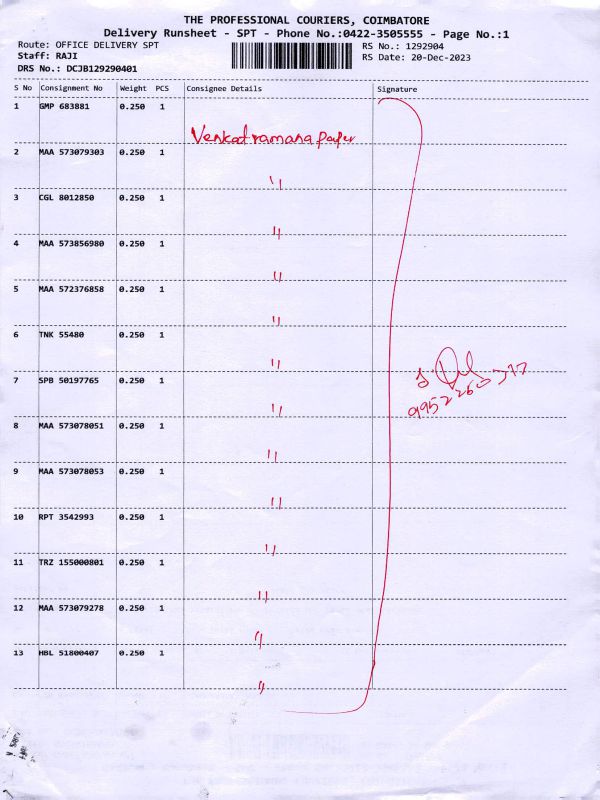 THE PROFESSIONAL COURIERS, COIMBATORE
Delivery Runsheet - SPT - Phone No.:0422-3505555 - Page No.:1
Route: OFFICE DELIVERY SPT RS No.: 1292904
Staff: RAJI RS Date: 20-Dec-2023
DRS No.: DCJB129290401
S No Consignment No Weight PCS Consignee Details Signature
1 GMP 683881 0.250 1
Venkatramana paper
2 MAA 573079303 0.250 1
"
3 CGL 8012850 0.250 1
"
4 MAA 573856980 0.250 1
"
5 MAA 572376858 0.250 1
"
6 TNK 55480 0.250 1
"
7 SPB 50197765 0.250 1
"
8 MAA 573078051 0.250 1
"
9 MAA 573078053 0.250 1
"
10 RPT 3542993 0.250 1
"
11 TRZ 155000801 0.250 1
"
12 MAA 573079278 0.250 1
"
13 HBL 51800407 0.250 1
"